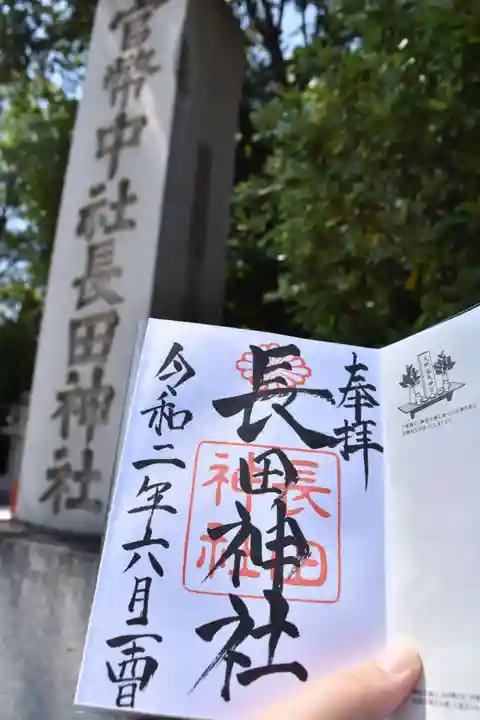 官幣中社長田神社
奉拝
長田神社
長田
神社
令和二年六月二一日